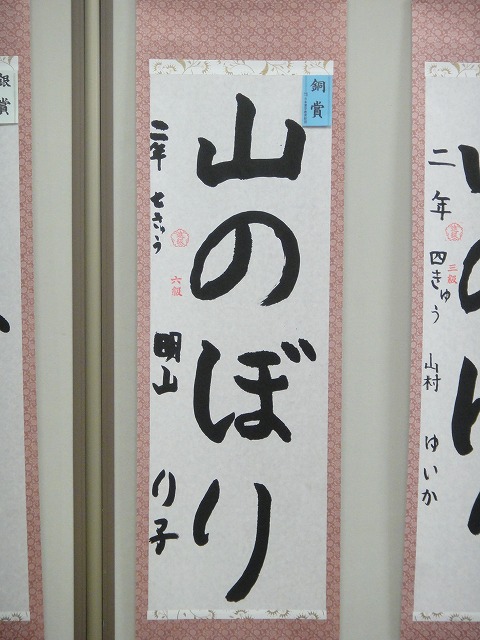 銅賞
山のぼり
二年 七きゅう
六級
明山 り子
銀賞
二年 四きゅう 山村 ゆいか
三級